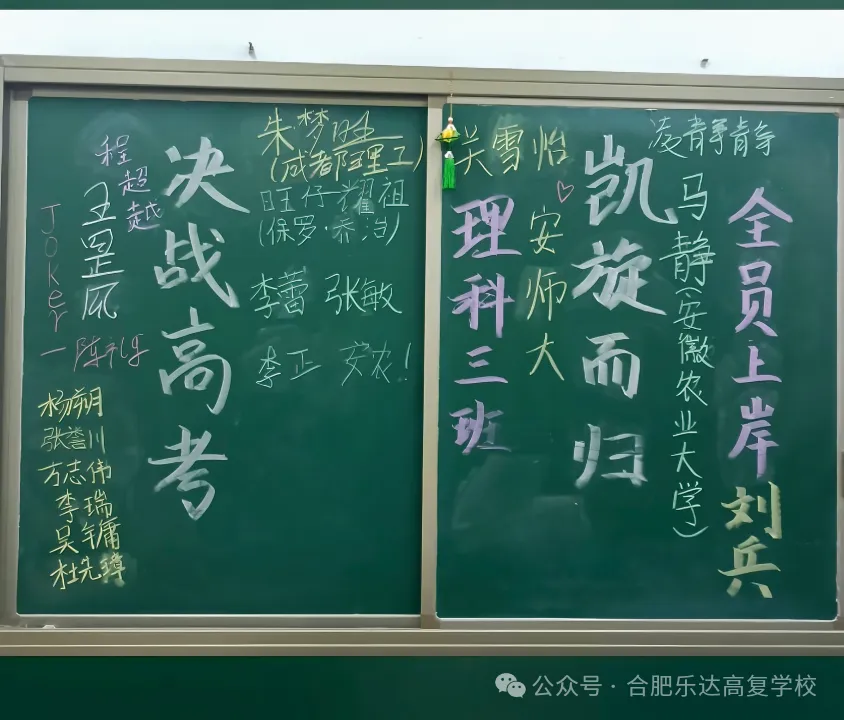 程超越
王罡风
Joker
一陈礼
决战高考
朱梦旺
(成都理工)
旺仔耀祖
(保罗·乔治)
李蕾 张敏
李正 安农!
杨朔
张誉川
方志伟
李瑞
吴镛
杜先璋
关雪怡
♡
安师大
理科三班
凯旋而归
凌静静
马静(安徽农业大学)
全员上岸
刘兵
公众号·合肥乐达高复学校